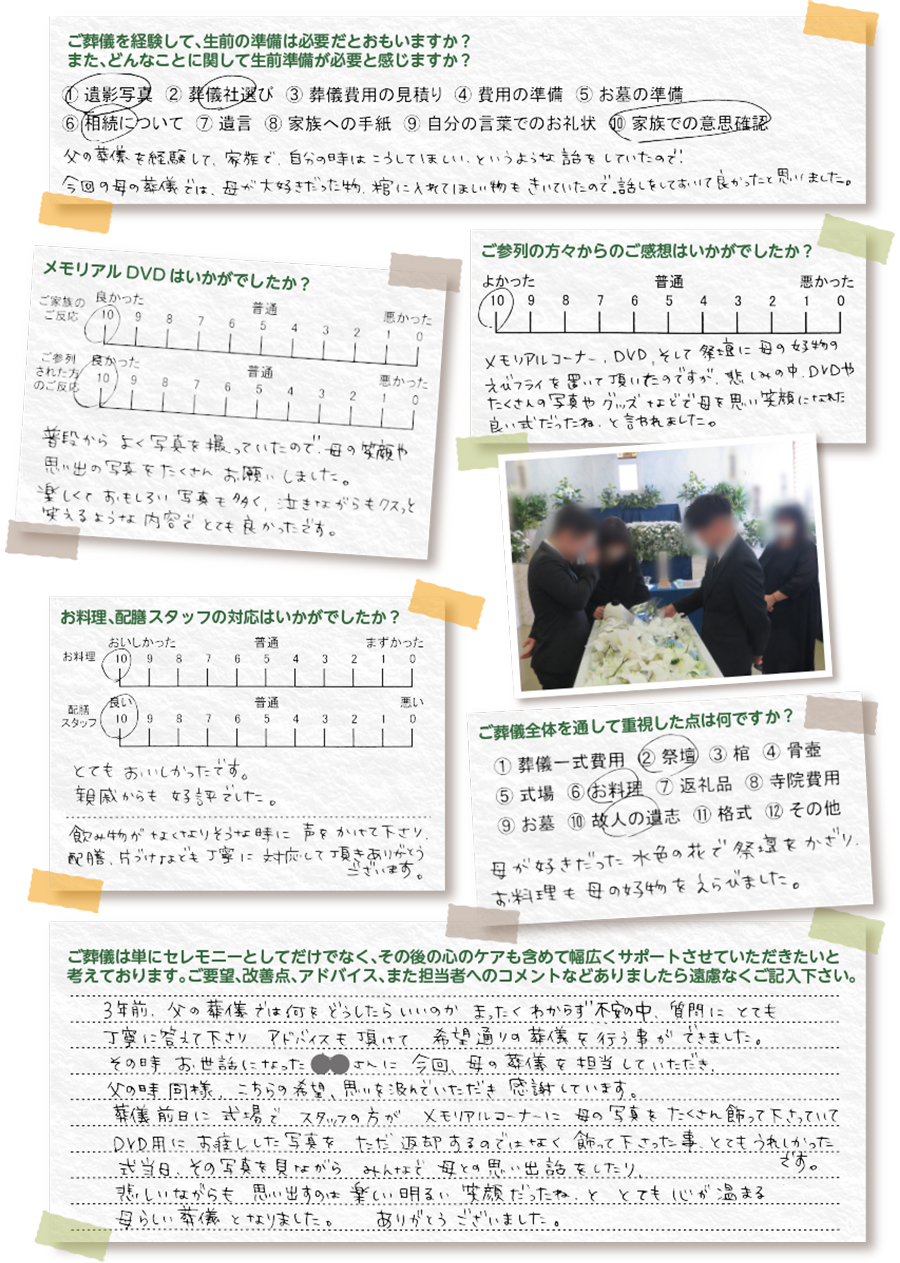 ご葬儀を経験して、生前の準備は必要だとおもいますか？
また、どんなことに関して生前準備が必要と感じますか？
① 遺影写真 ② 葬儀社選び ③ 葬儀費用の見積り ④ 費用の準備 ⑤ お墓の準備
⑥ 相続について ⑦ 遺言 ⑧ 家族への手紙 ⑨ 自分の言葉でのお礼状 ⑩ 家族での意思確認
父の葬儀を経験して、家族で、自分の時はこうしてほしい、というような話をしていたので、
今回の母の葬儀では、母が大好きだった物、棺に入れてほしい物もきいていたので、話しをしておいて良かったと思いました。
メモリアルDVDはいかがでしたか？
良かった 普通 悪かった
ご家族の
ご反応
10 9 8 7 6 5 4 3 2 1 0
良かった 普通 悪かった
ご参列
された方
のご反応
10 9 8 7 6 5 4 3 2 1 0
普段から よく写真を撮っていたので、母の笑顔や
思い出の写真をたくさん お願いしました。
楽しくて おもしろい 写真も多く、泣きながらもクスっと
笑えるような内容で とても良かったです。
ご参列の方々からのご感想はいかがでしたか？
よかった 普通 悪かった
10 9 8 7 6 5 4 3 2 1 0
メモリアルコーナー、DVD、そして祭壇に母の好物の
えびフライを置いて頂いたのですが、悲しみの中、DVDや
たくさんの写真や グッズなどで母を思い笑顔になれた
良い式だったね、と言われました。
お料理、配膳スタッフの対応はいかがでしたか？
おいしかった 普通 まずかった
お料理
10 9 8 7 6 5 4 3 2 1 0
良い 普通 悪い
配膳
スタッフ
10 9 8 7 6 5 4 3 2 1 0
とても おいしかったです。
親戚からも 好評でした。
飲み物が なくなりそうな時に 声をかけて下さり、
配膳、片づけなども丁寧に 対応して頂きありがとう
ございます。
ご葬儀全体を通して重視した点は何ですか？
① 葬儀一式費用 ② 祭壇 ③ 棺 ④ 骨壺
⑤ 式場 ⑥ お料理 ⑦ 返礼品 ⑧ 寺院費用
⑨ お墓 ⑩ 故人の遺志 ⑪ 格式 ⑫ その他
母が好きだった 水色の花で 祭壇をかざり、
お料理も 母の好物を えらびました。
ご葬儀は単にセレモニーとしてだけでなく、その後の心のケアも含めて幅広くサポートさせていただきたいと
考えております。ご要望、改善点、アドバイス、また担当者へのコメントなどありましたら遠慮なくご記入下さい。
3年前、父の葬儀では何をどうしたらいいのか まったくわからず 不安の中、質問に とても
丁寧に答えて下さり アドバイスも頂けて 希望通りの葬儀を行う事ができました。
その時 お世話になった●●さんに 今回、母の葬儀を担当していただき、
父の時同様、こちらの希望、思いを汲んでいただき 感謝しています。
葬儀前日に 式場で スタッフの方が メモリアルコーナーに 母の写真を たくさん飾って下さっていて
DVD用に お渡しした写真を ただ返却するのではなく 飾って下さった事、とてもうれしかった
です。
式当日、その写真を見ながら みんなで 母との思い出話をしたり、
悲しいながらも 思い出すのは 楽しい明るい 笑顔だったね、と とても 心が温まる
母らしい葬儀 となりました。 ありがとう ございました。